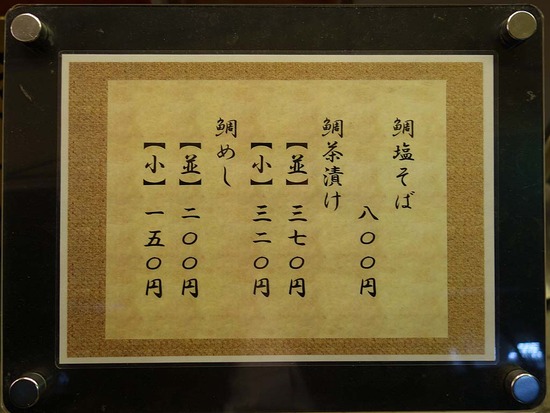 鯛塩そば
八〇〇円
鯛茶漬け
【並】三七〇円
【小】三二〇円
鯛めし
【並】二〇〇円
【小】一五〇円